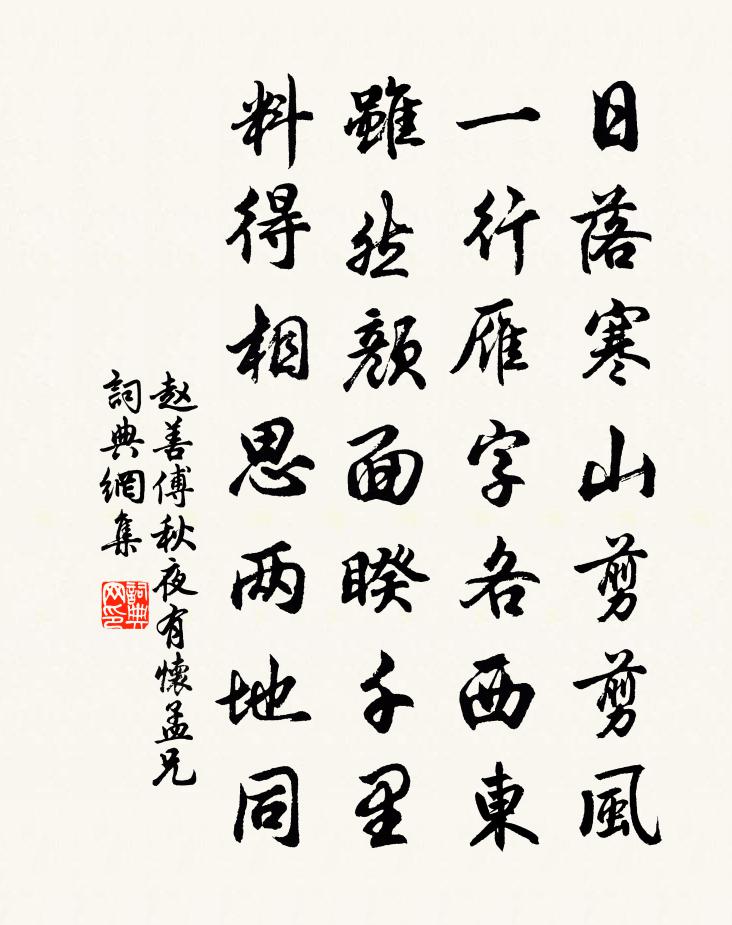 日落寒山剪剪風
一行雁字各西東
雖然顏面睽千里
料得相思两地同
赵善傅秋夜有懷孟兄
詞典網集
詞典网印